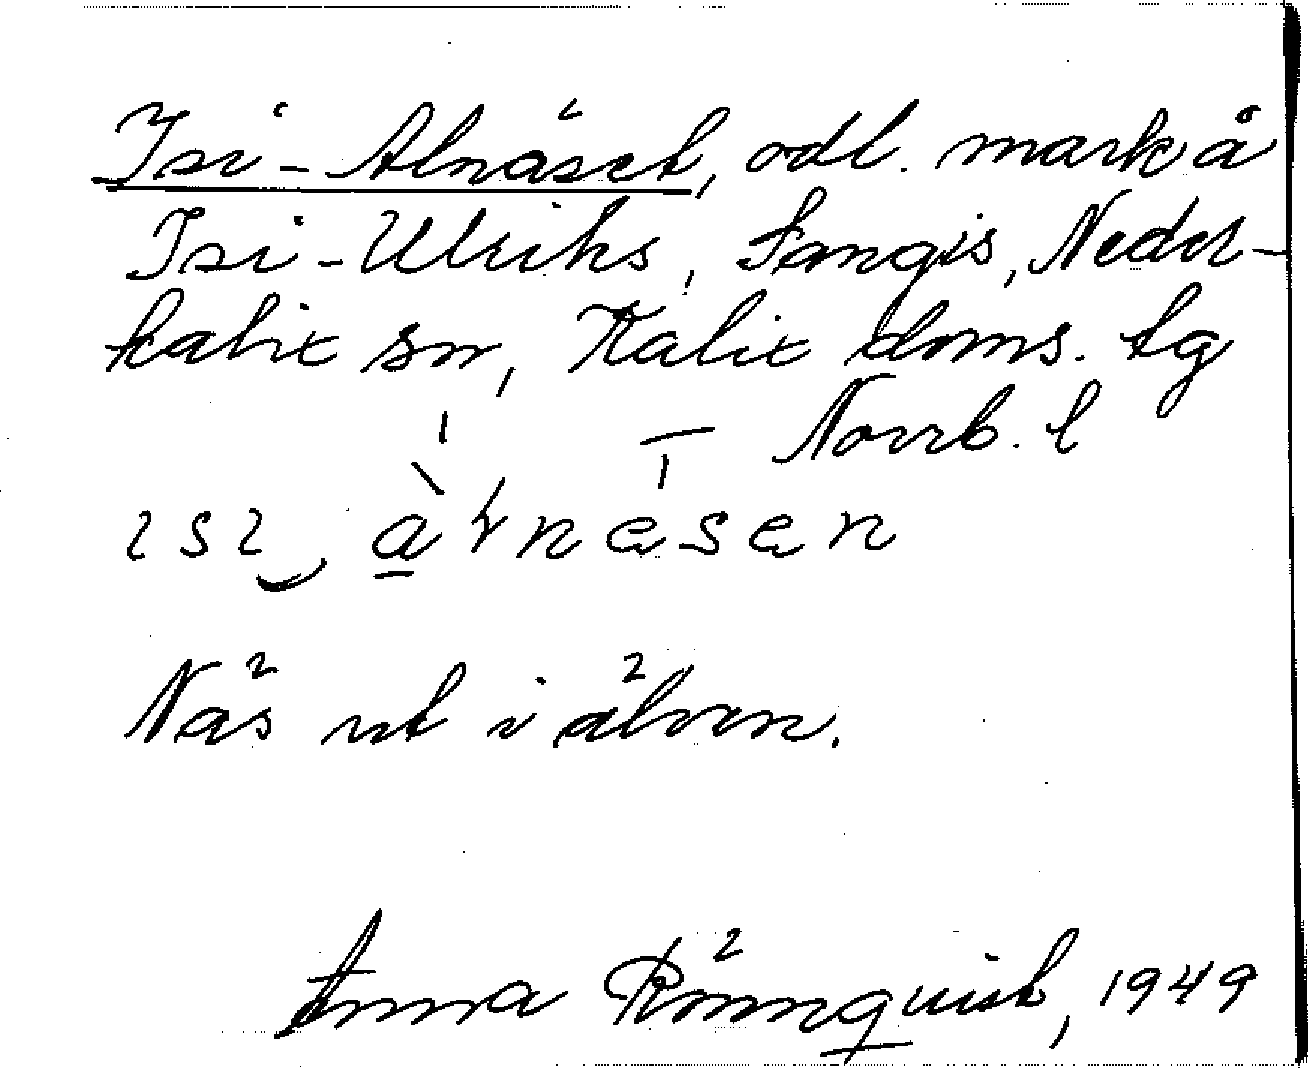 Isi-Alnäset, odl. mark å
Isi-Ulriks, Sangis, Neder-
kalix sn, Kalix doms. tg
Norrb. l
Näs ut i älven.
Anna Rönnquist, 1949